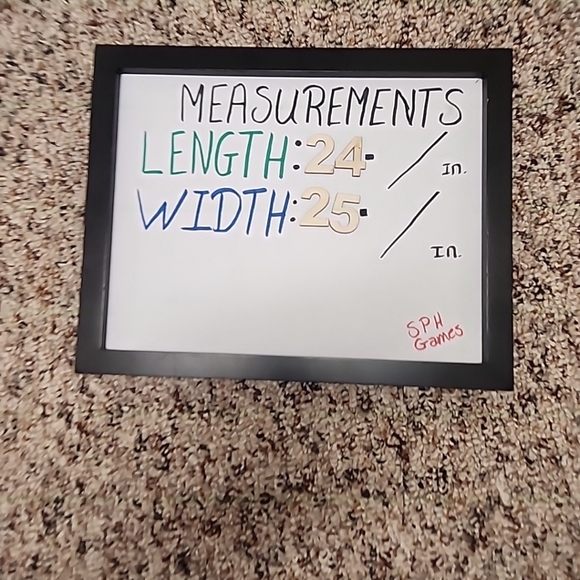 MEASUREMENTS
LENGTH: 24- / In.
WIDTH: 25- / In.
S.P.H
Games